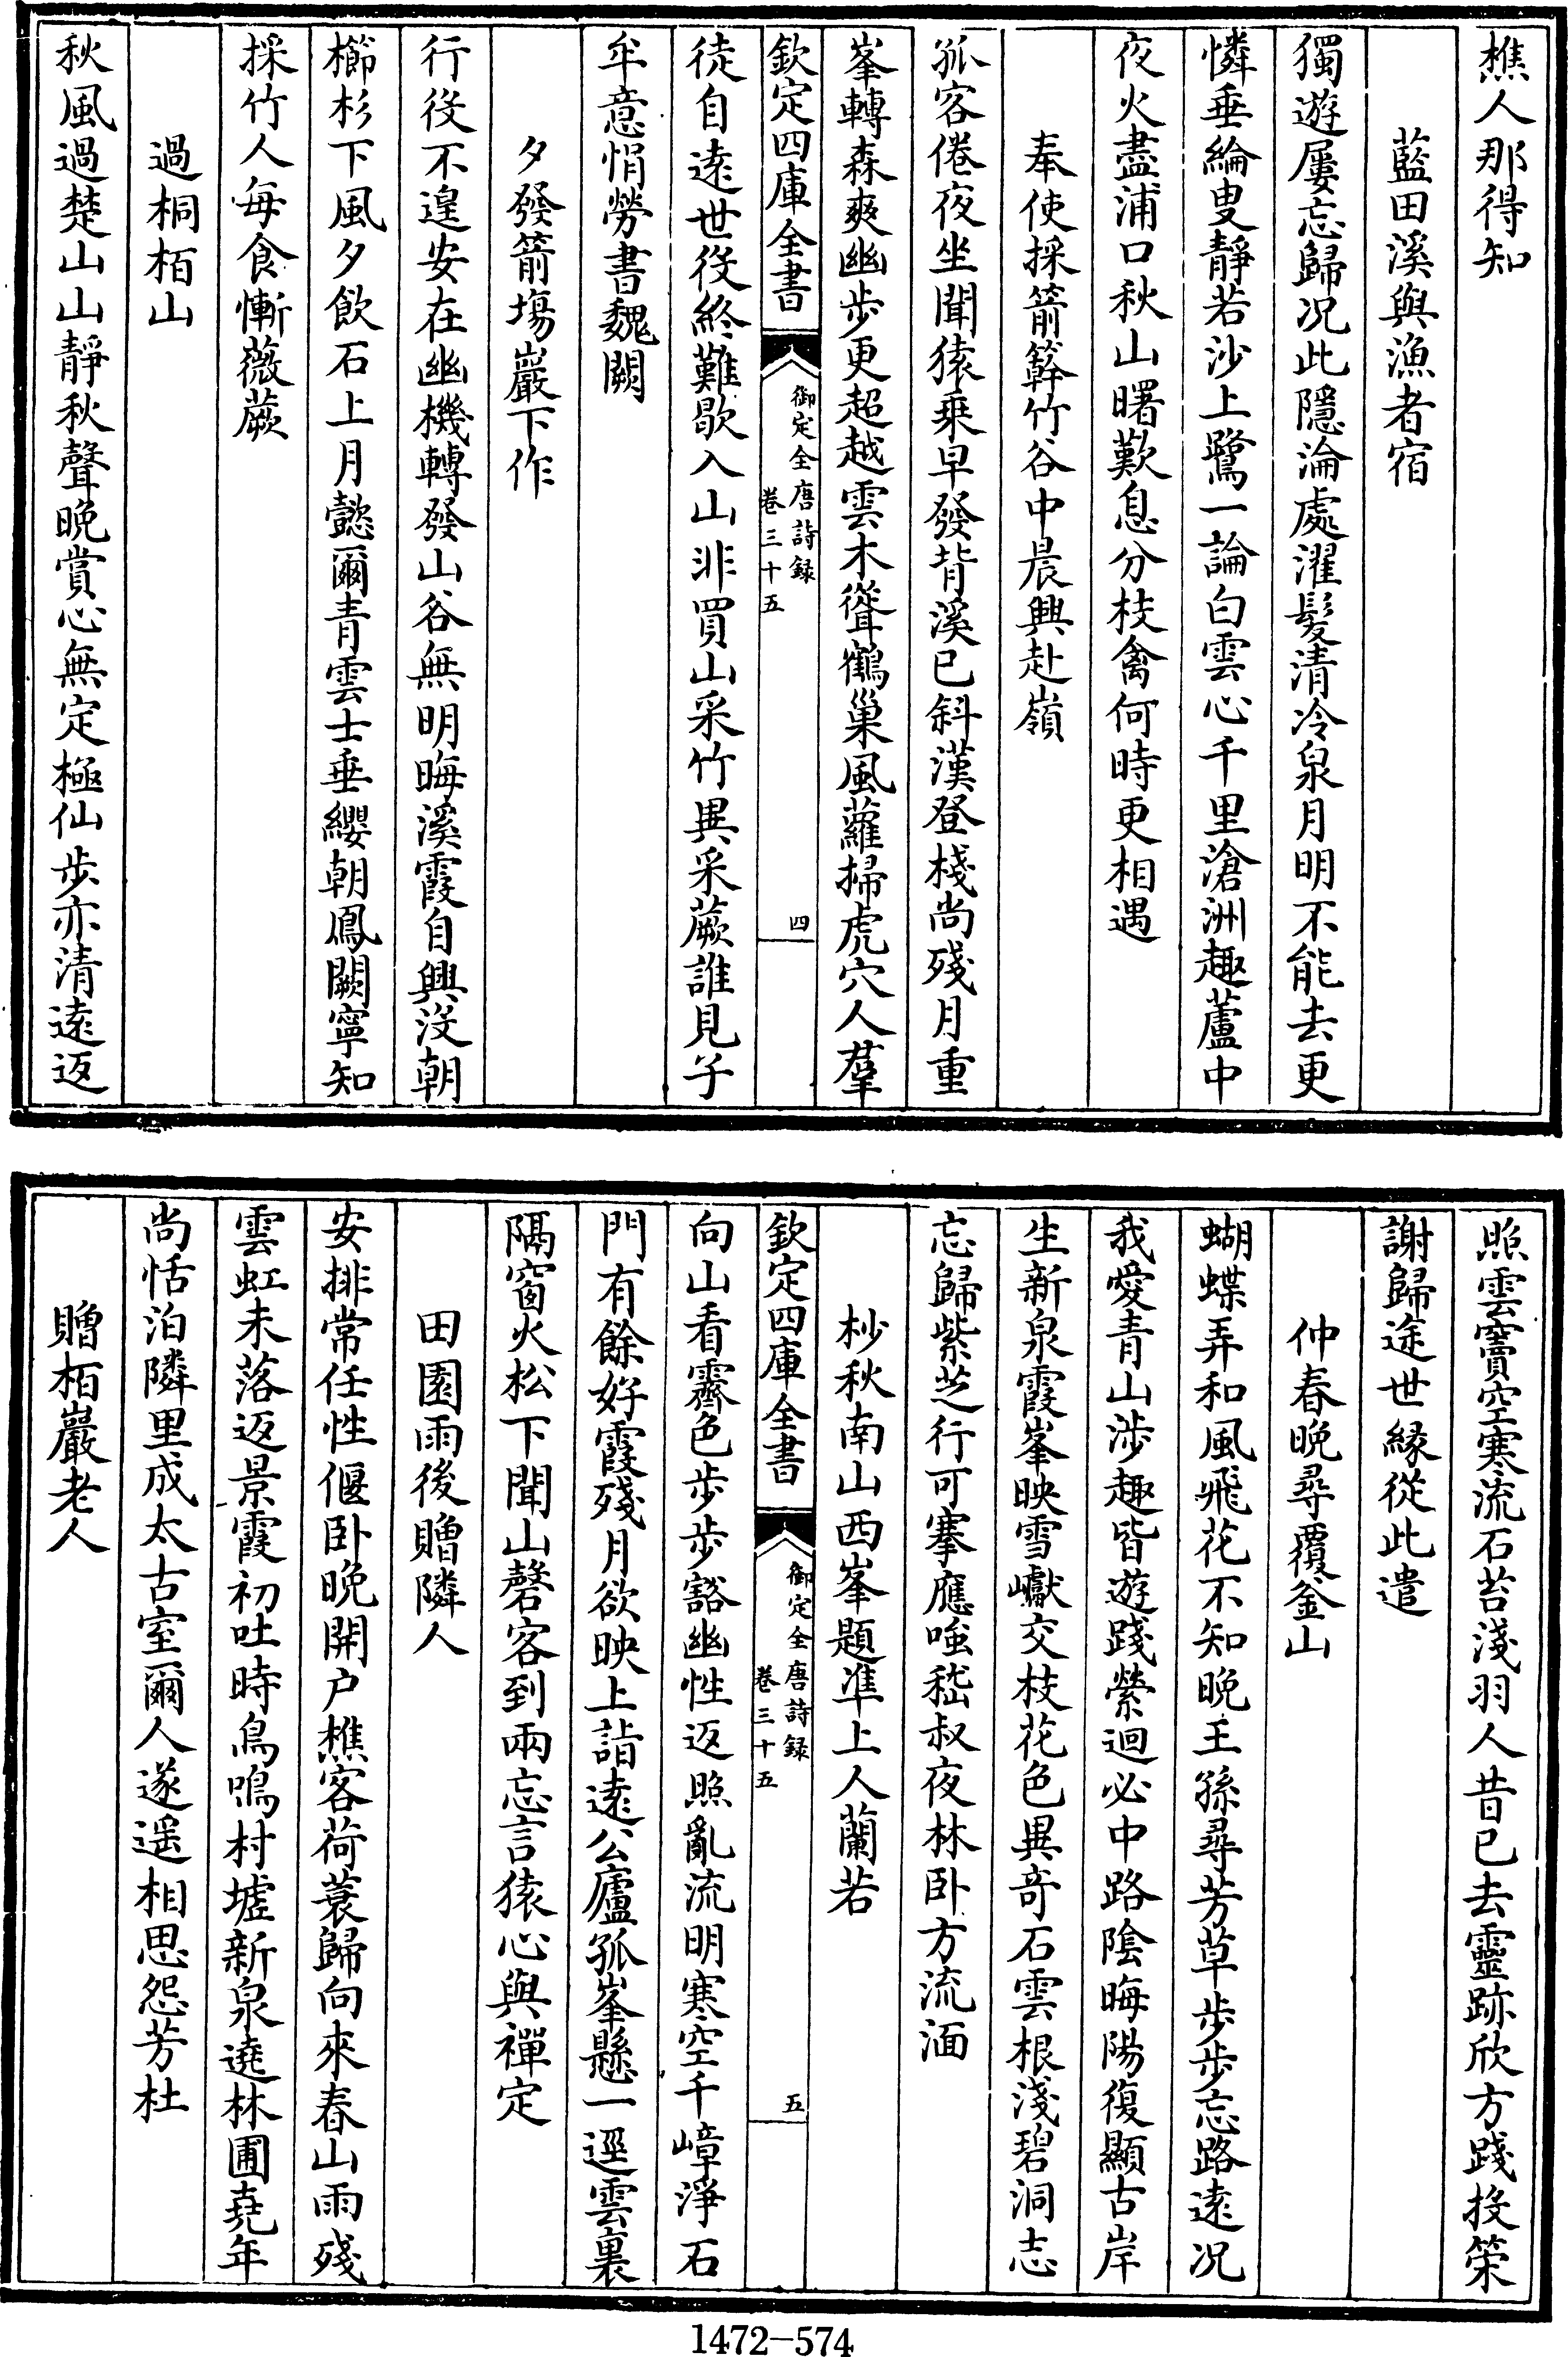 樵人那得知
藍田溪與漁者宿
獨遊屢忘歸况此隱淪處濯髮清冷泉月明不能去更
憐垂綸叟靜若沙上鷺一論白雲心千里滄洲趣蘆中
夜火盡浦口秋山曙歎息分枝禽何時更相遇
奉使採箭簳竹谷中晨興赴嶺
孤客倦夜坐聞猿乘早發背溪已斜漢登棧尚殘月重
峯轉森爽幽步更超越雲木聳鶴巢風蘿掃虎穴人羣
欽定四庫全書
御定全唐詩録
卷三十五
四
徒自遠世役終難歇入山非買山采竹異采蕨誰見子
牟意悁勞書魏闕
夕發箭塲巖下作
行役不遑安在幽機轉發山谷無明晦溪霞自興沒朝
櫛杉下風夕飲石上月懿爾青雲士垂纓朝鳳闕寧知
採竹人每食慚薇蕨
過桐栢山
秋風過楚山山靜秋聲晚賞心無定極仙步亦清遠返
照雲竇空寒流石苔淺羽人昔已去靈跡欣方踐投策
謝歸途世緣從此遣
仲春晚尋覆釜山
蝴蝶弄和風飛花不知晚王孫尋芳草步步忘路遠况
我愛青山涉趣皆遊踐縈迴必中路陰晦陽復顯古岸
生新泉霞峯映雪巘交枝花色異奇石雲根淺碧洞志
忘歸紫芝行可搴應嗤嵇叔夜林卧方流湎
杪秋南山西峯題準上人蘭若
向山看霽色步步豁幽性返照亂流明寒空千嶂淨石
欽定四庫全書
御定全唐詩録
卷三十五
五
門有餘好霞殘月欲映上詣遠公廬孤峯懸一逕雲裏
隔窗火松下聞山磬客到兩忘言猿心與禪定
田園雨後贈隣人
安排常任性偃卧晚開户樵客荷蓑歸向來春山雨殘
雲虹未落返景霞初吐時鳥鳴村墟新泉遶林圃堯年
尚恬泊隣里成太古室爾人遂遥相思怨芳杜
贈栢巖老人
1472-574